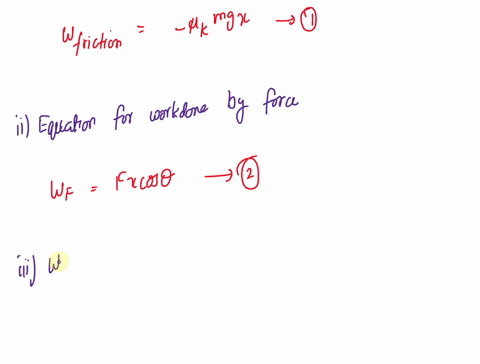 W friction = -μk mgx → ①
ii) Equation for workdone by force
WF = Fx cosθ → ②
iii) W